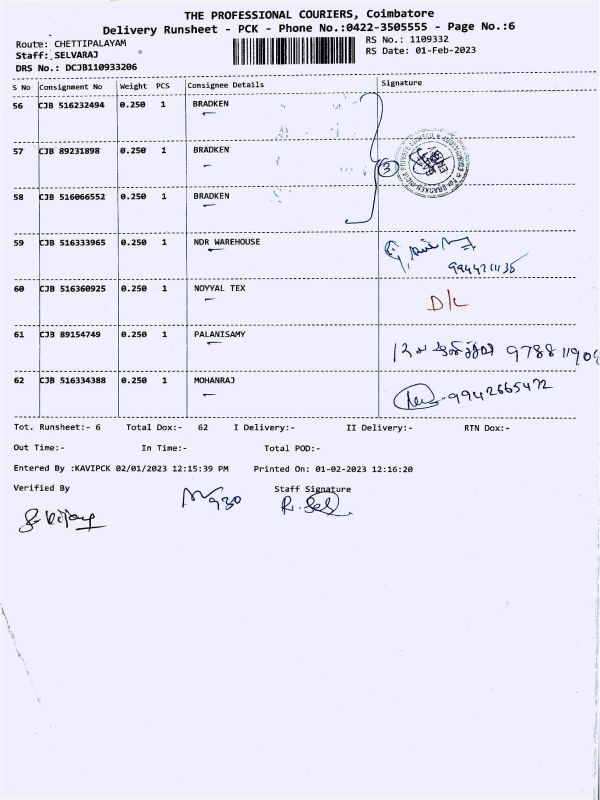 THE PROFESSIONAL COURIERS, Coimbatore
Delivery Runsheet - PCK - Phone No.:0422-3505555 - Page No.:6
Route: CHETTIPALAYAM
RS No.: 1109332
Staff: SELVARAJ
RS Date: 01-Feb-2023
DRS No.: DCJB110933206
S No Consignment No Weight PCS Consignee Details Signature
56 CJB 516232494 0.250 1 BRADKEN
57 CJB 89231898 0.250 1 BRADKEN
3
58 CJB 516066552 0.250 1 BRADKEN
59 CJB 516333965 0.250 1 NDR WAREHOUSE
60 CJB 516360925 0.250 1 NOYYAL TEX D/L
61 CJB 89154749 0.250 1 PALANISAMY
62 CJB 516334388 0.250 1 MOHANRAJ 9942665472
Tot. Runsheet:- 6 Total Dox:- 62 I Delivery:- II Delivery:- RTN Dox:-
Out Time:- In Time:- Total POD:-
Entered By :KAVIPCK 02/01/2023 12:15:39 PM Printed On: 01-02-2023 12:16:20
Verified By Staff Signature